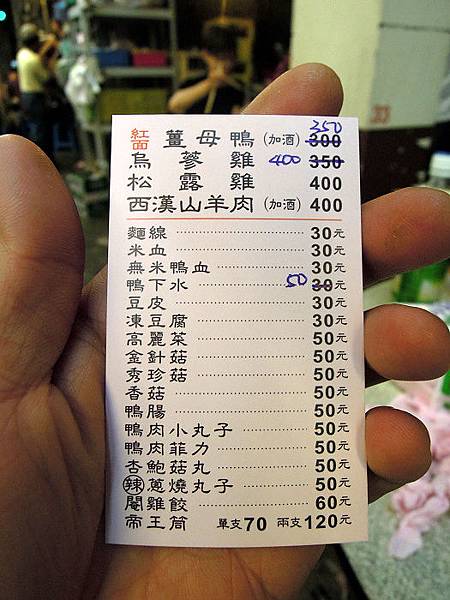 紅面 薑母鴨 (加酒) 300 350
烏蔘雞 400 350
松露雞 400
西漢山羊肉 (加酒) 400
麵線 30元
米血 30元
無米鴨血 30元
鴨下水 50 30元
豆皮 30元
凍豆腐 30元
高麗菜 50元
金針菇 50元
秀珍菇 50元
香菇 50元
鴨腸 50元
鴨肉小丸子 50元
鴨肉菲力 50元
杏鮑菇丸 50元
辣蔥燒丸子 50元
閹雞餃 60元
帝王筒 單支70 兩支120元
33